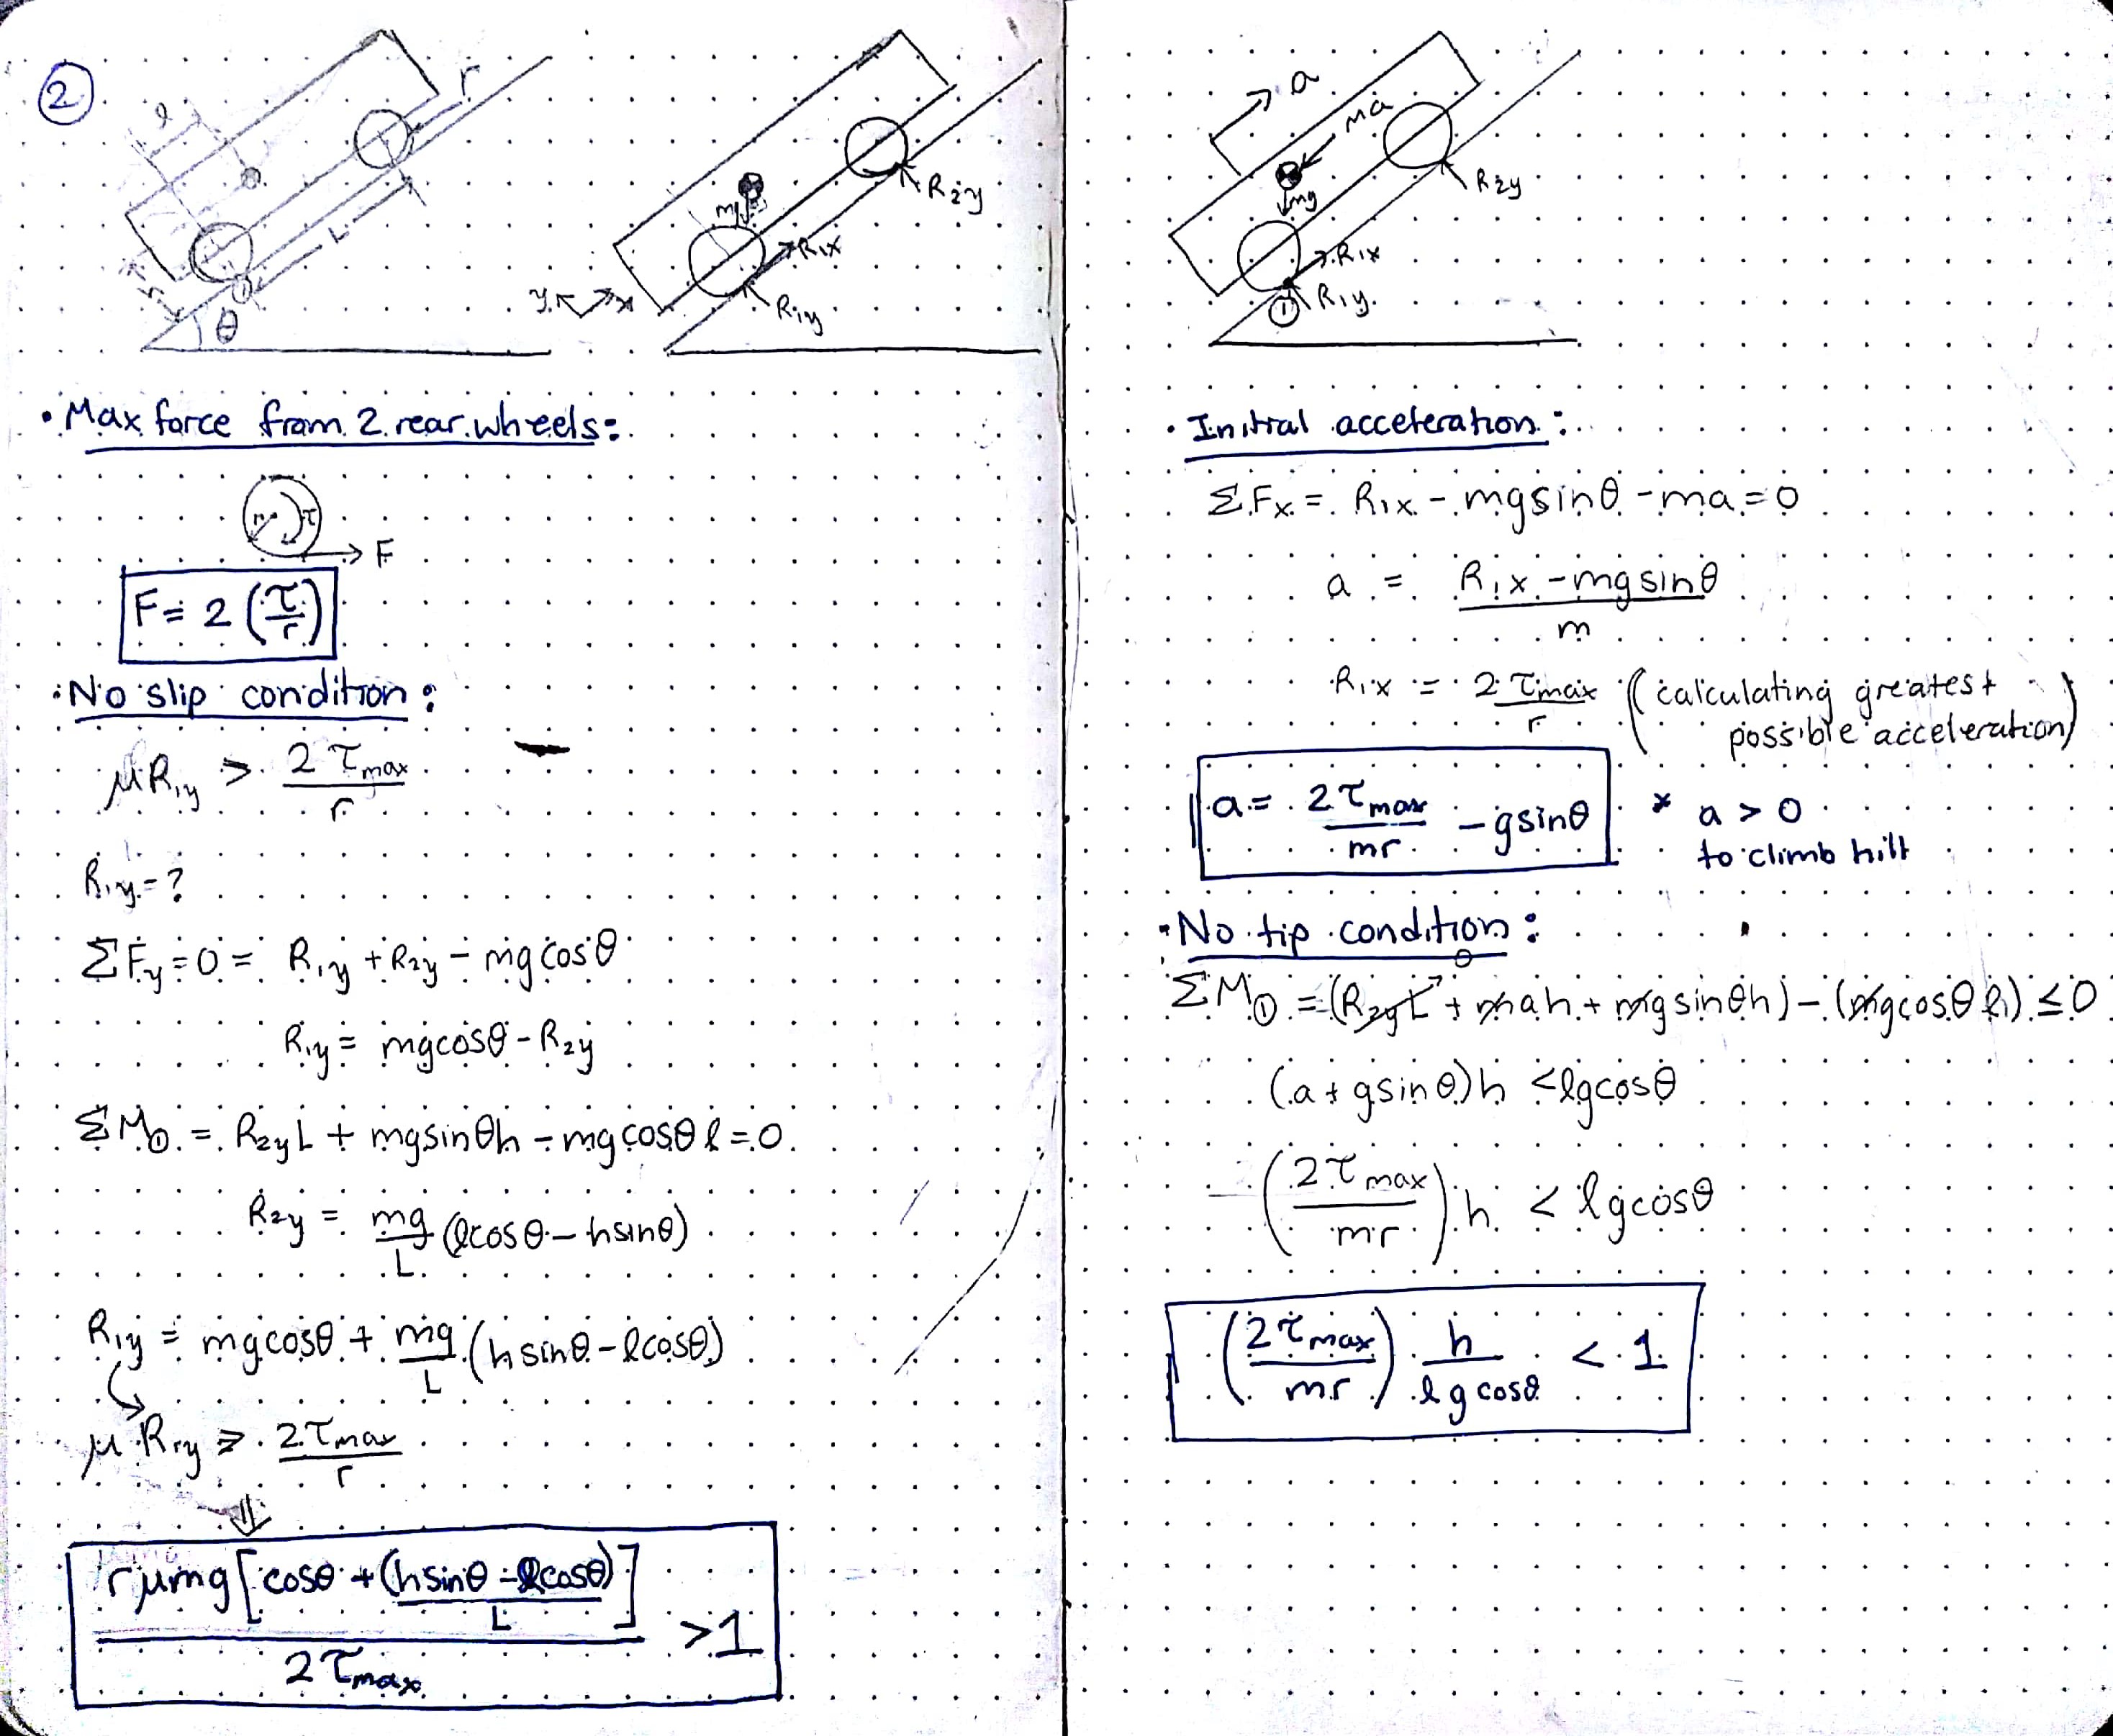 ②
l r L h ① θ
mg R2y R1x R1y y x
• Max force from 2 rear wheels:
r τ F
F = 2 (τ/r)
• No slip condition:
μR1y > 2τmax/r
R1y = ?
ΣFy = 0 = R1y + R2y - mgcosθ
R1y = mgcosθ - R2y
ΣM① = R2yL + mgsinθh - mgcosθl = 0
R2y = mg/L (lcosθ - hsinθ)
R1y = mgcosθ + mg/L (hsinθ - lcosθ)
μR1y ≥ 2τmax/r
⇓
rμmg[cosθ + (hsinθ - lcosθ)/L] / 2τmax > 1
a ma mg R2y R1x R1y ①
• Initial acceleration:
ΣFx = R1x - mgsinθ - ma = 0
a = (R1x - mgsinθ)/m
R1x = 2τmax/r (calculating greatest possible acceleration)
a = 2τmax/mr - gsinθ * a > 0
to climb hill
• No tip condition:
ΣM① = (R2yL→0 + mah + mgsinθh) - (mgcosθl) ≤ 0
(a + gsinθ)h < lgcosθ
(2τmax/mr) h < lgcosθ
(2τmax/mr) h/lgcosθ < 1